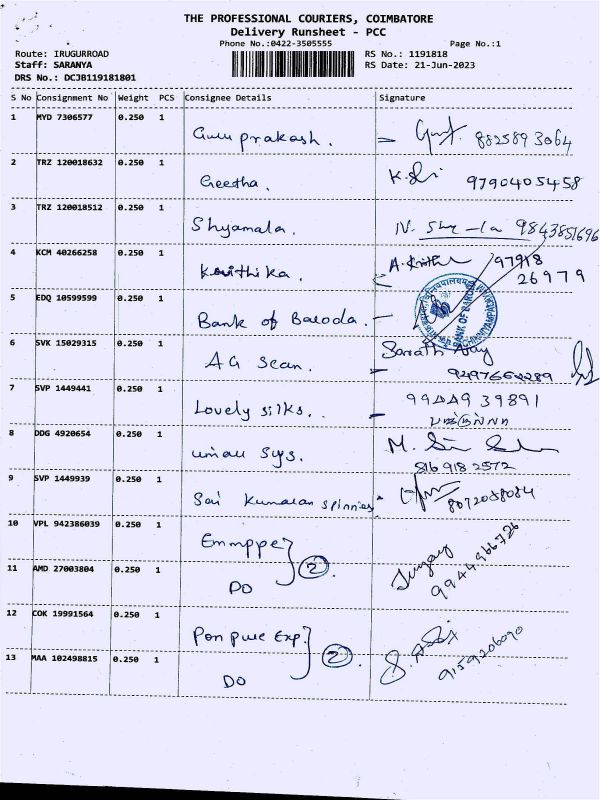 THE PROFESSIONAL COURIERS, COIMBATORE
Delivery Runsheet - PCC
Phone No.:0422-3505555 Page No.:1
Route: IRUGURROAD RS No.: 1191818
Staff: SARANYA RS Date: 21-Jun-2023
DRS No.: DCJB119181801
S No Consignment No Weight PCS Consignee Details Signature
1 MYD 7306577 0.250 1
Guru prakash. = 8825893064
2 TRZ 120018632 0.250 1
Geetha. 9790405458
3 TRZ 120018512 0.250 1
Shyamala. N. 9843851696
4 KCM 40266258 0.250 1
Kavithika. 97918
26979
5 EDQ 10599599 0.250 1
Bank of Baroda. BANK OF BARODA
6 SVK 15029315 0.250 1 Sarath
AG Scan. 9497664289
7 SVP 1449441 0.250 1
Lovely silks.. 99449 39891
8 DDG 4920654 0.250 1
Sys. M.
816 918 2572
9 SVP 1449939 0.250 1
Sai Kumaran spinnies 8072088084
10 VPL 942386039 0.250 1
Emmppe 2. 9944966726
11 AMD 27003804 0.250 1
DO
12 COK 19991564 0.250 1
Pon pure Exp. 2. 9159206090
13 MAA 102498815 0.250 1
DO